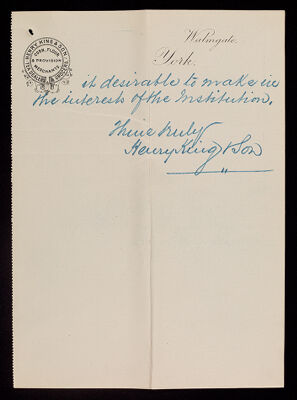 HENRY KING & SON,
CORN, FLOUR
& PROVISION
MERCHANTS
Walmgate,
York.
it desirable to make in
the interests of the Institution.
Thine truly
Henry King & Son